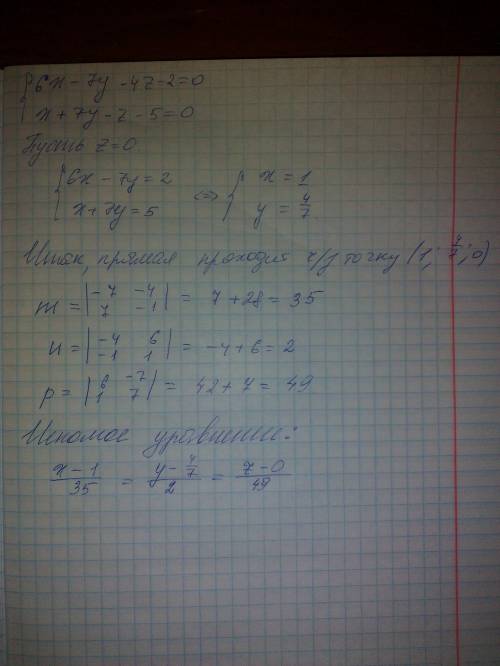 { 6x - 7y - 4z - 2 = 0
x + 7y - z - 5 = 0
Пусть z = 0
{ 6x - 7y = 2 <=> { x = 1
x + 7y = 5 y = 4/7
Итак, прямая проходит ч/з точку (1; 4/7; 0)
m = |-7 -4; 7 -1| = 7 + 28 = 35
n = |-4 6; -1 1| = -4 + 6 = 2
p = |6 -7; 1 7| = 42 + 7 = 49
Искомое уравнение:
(x - 1)/35 = (y - 4/7)/2 = (z - 0)/49